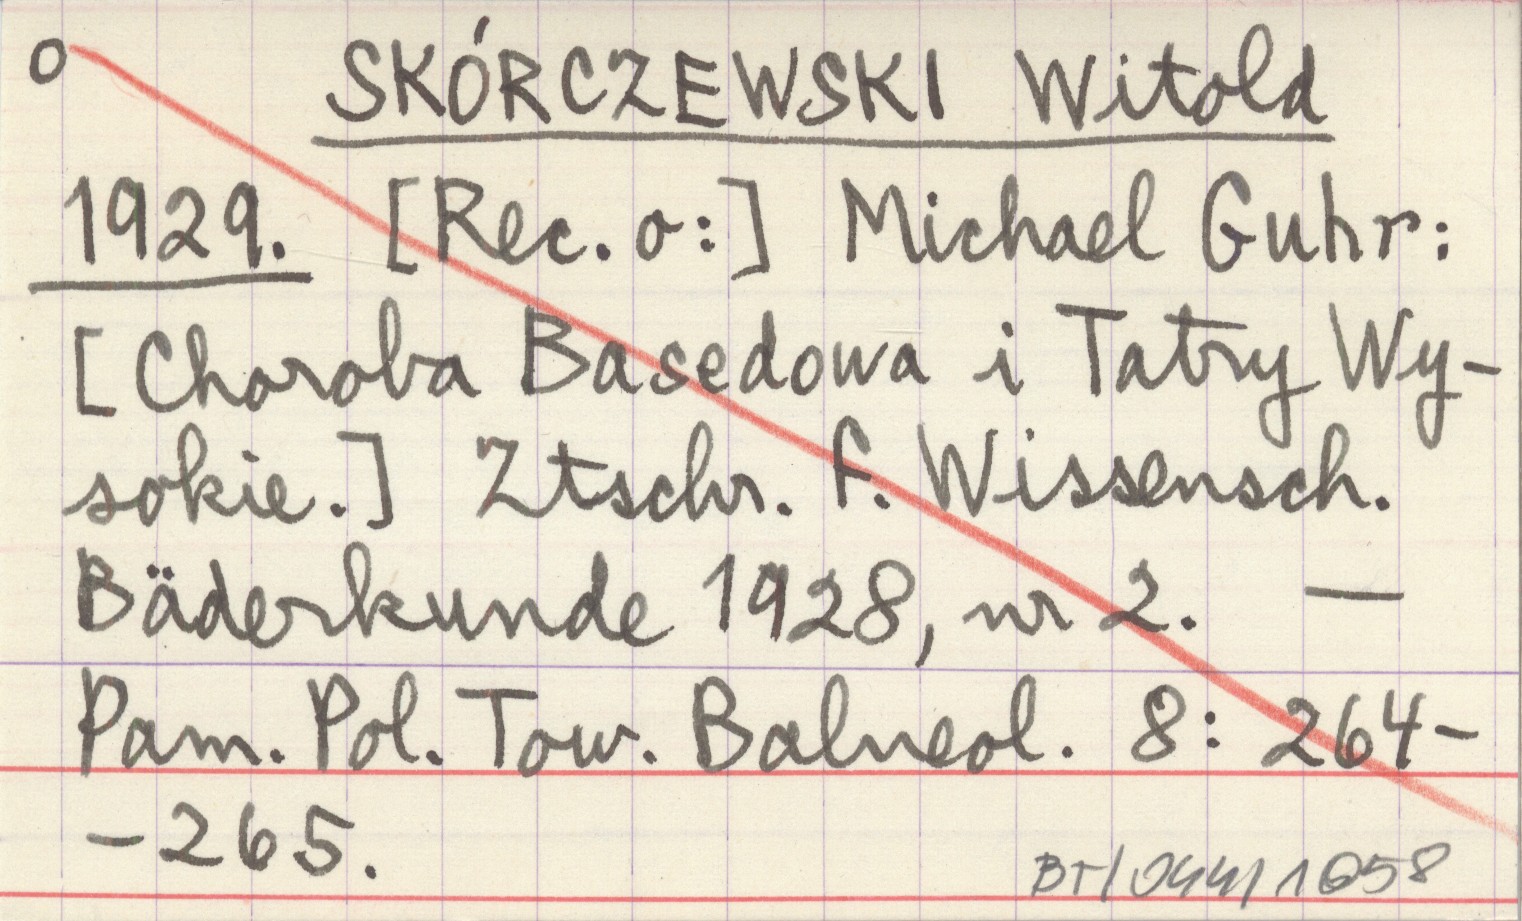 o SKÓRCZEWSKI Witold
1929. [Rec. o:] Michael Guhr:
[Choroba Basedowa i Tatry Wy-
sokie.] Ztschr. f. Wissensch.
Bäderkunde 1928, nr 2. —
Pam. Pol. Tow. Balneol. 8: 264-
-265.
BT/044/1058